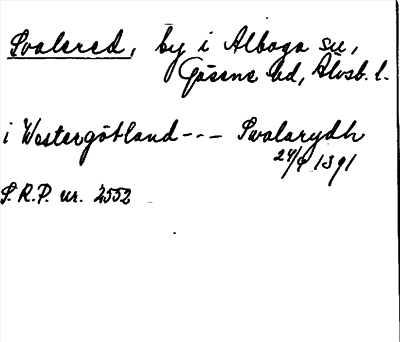 Svalered, by i Alboga sn,
Gäsene hd, Älvsb. l.
i Westergötland --- Swalarydh
24/9 1391
S.R.P. nr. 2552